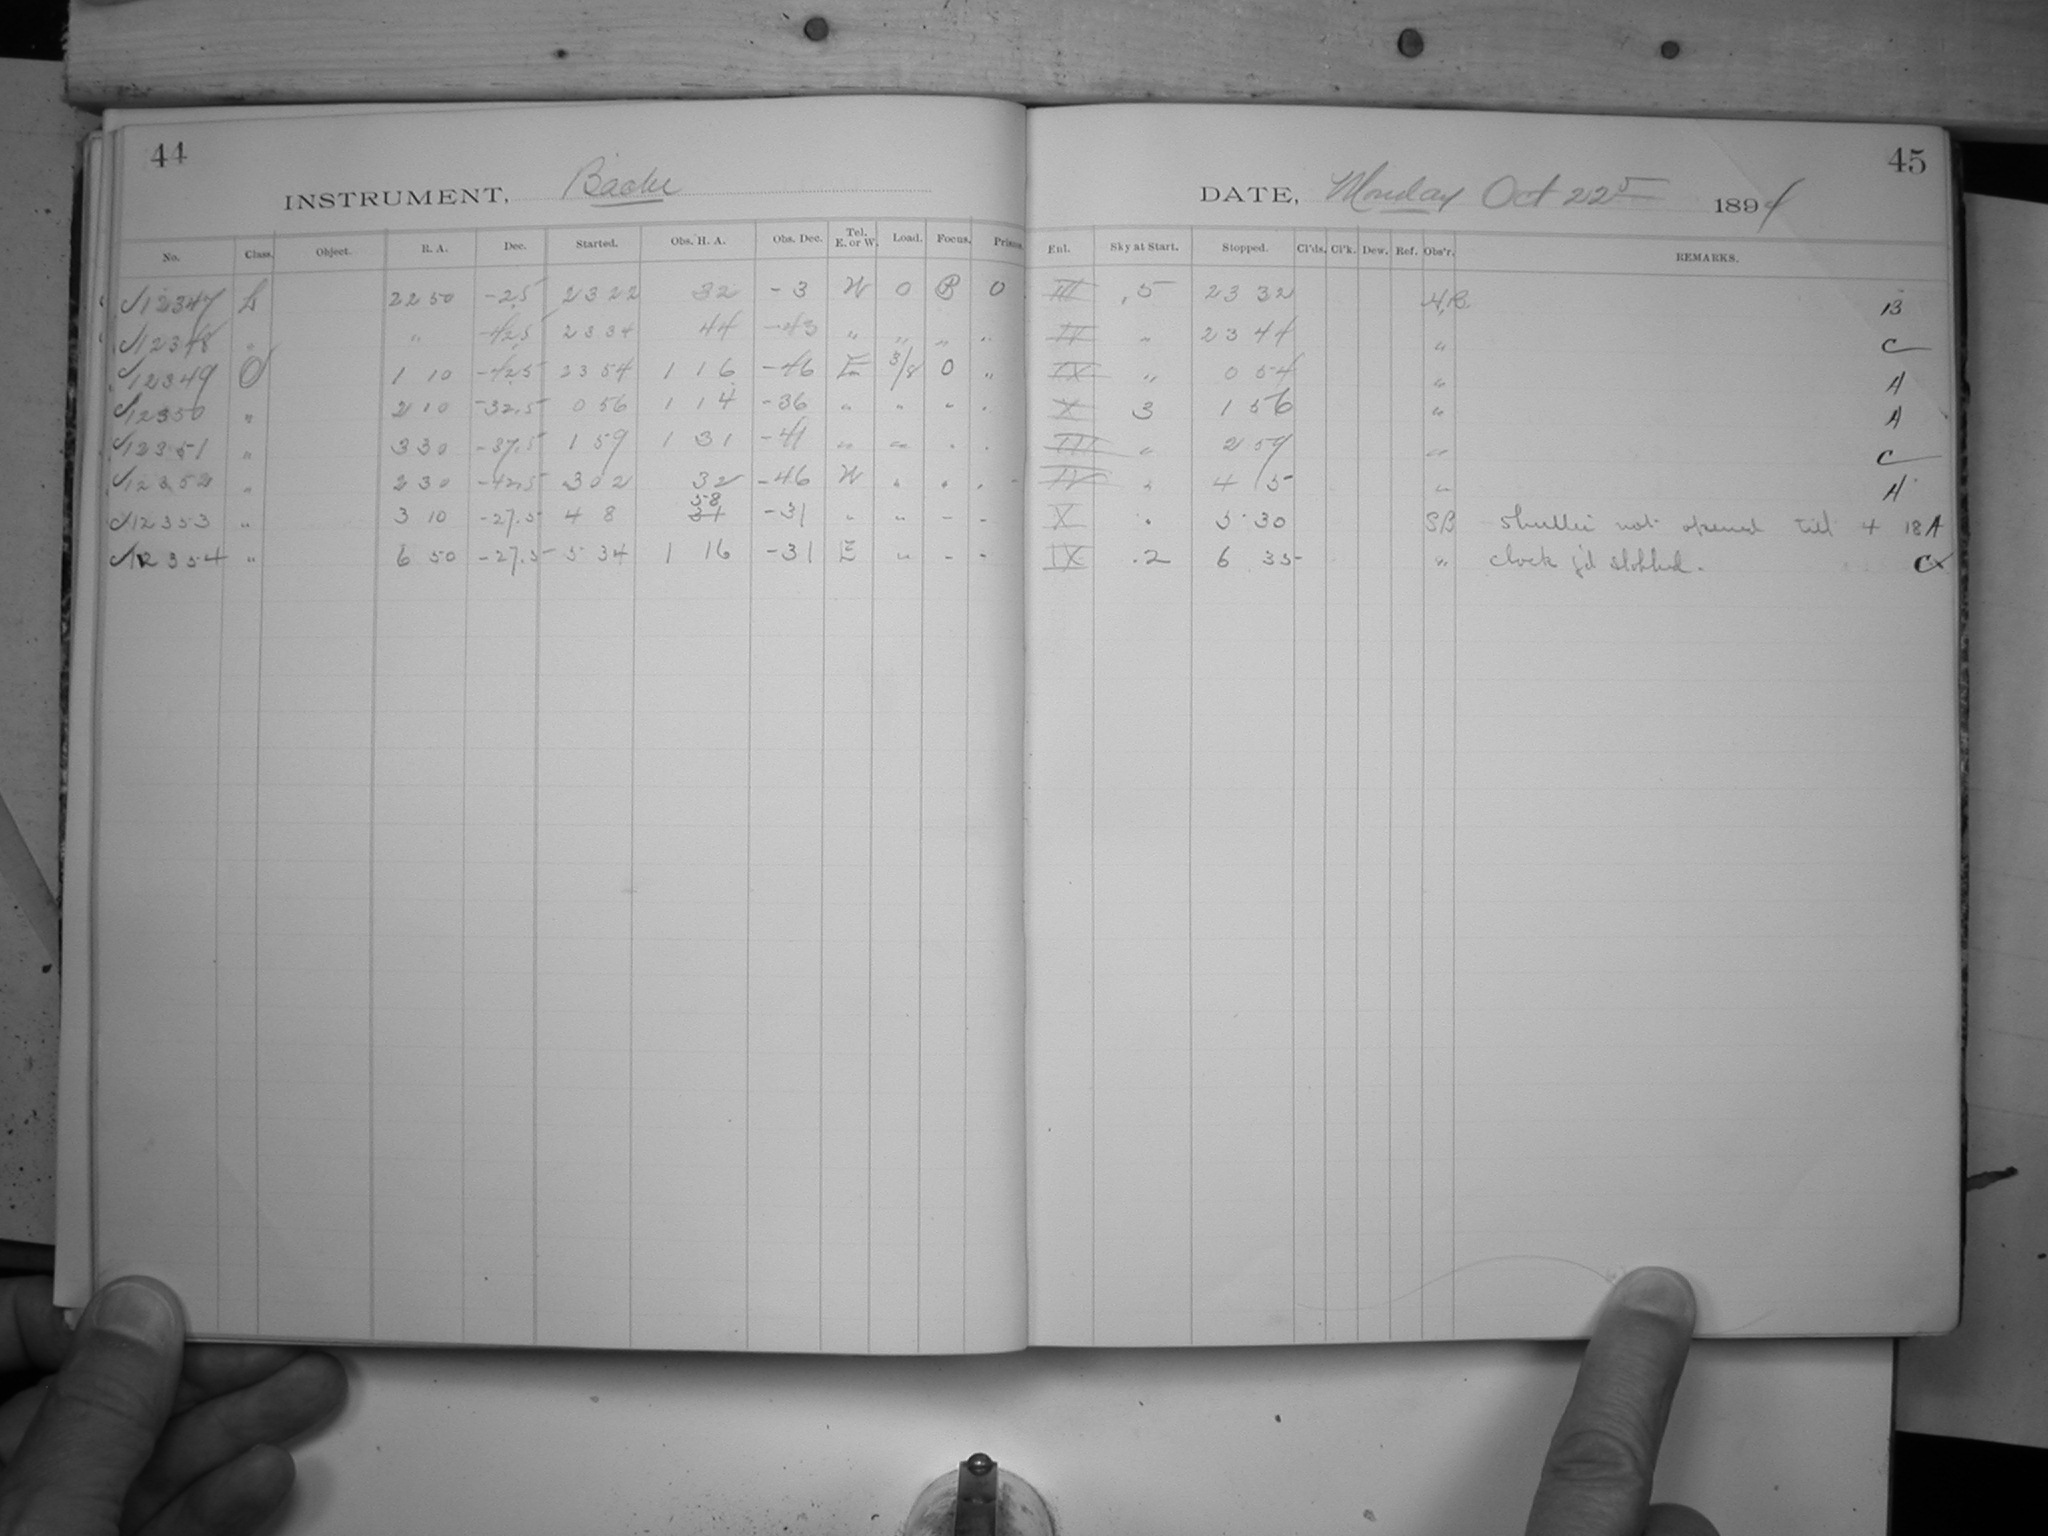 44
INSTRUMENT, Bache
No. Class. Object. R. A. Dec. Started. Obs. H. A. Obs. Dec. Tel. E. or W. Load. Focus. Prisms.
12347 L 22 50 -2.5 23 22 32 -3 W 0 P 0
12348 " " -42.5 23 34 44 -43 " " " "
12349 O 1 10 -42.5 23 54 1 16 -46 E 3/8 0 "
12350 " 2 10 -32.5 0 56 1 14 -36 " " " "
12351 " 3 30 -37.5 1 59 1 31 -41 " " " "
12352 " 2 30 -42.5 3 02 32 -46 W " " "
12353 " 3 10 -27.5 4 8 58 -31 " " " "
12354 " 6 50 -27.5 5 34 1 16 -31 E " " "
45
DATE, Monday Oct 22 1894
Enl. Sky at Start. Stopped. Cl'ds. Cl'k. Dew. Ref. Obs'r. REMARKS.
III .5 23 32 B
IV " 23 44 " C
IX " 0 54 " A
X 3 1 56 " A
III " 2 59 " C
IV " 4 5 " A
X " 5 30 SB shutter not opened till 4 18 A
IX .2 6 35 " clock stopped. C